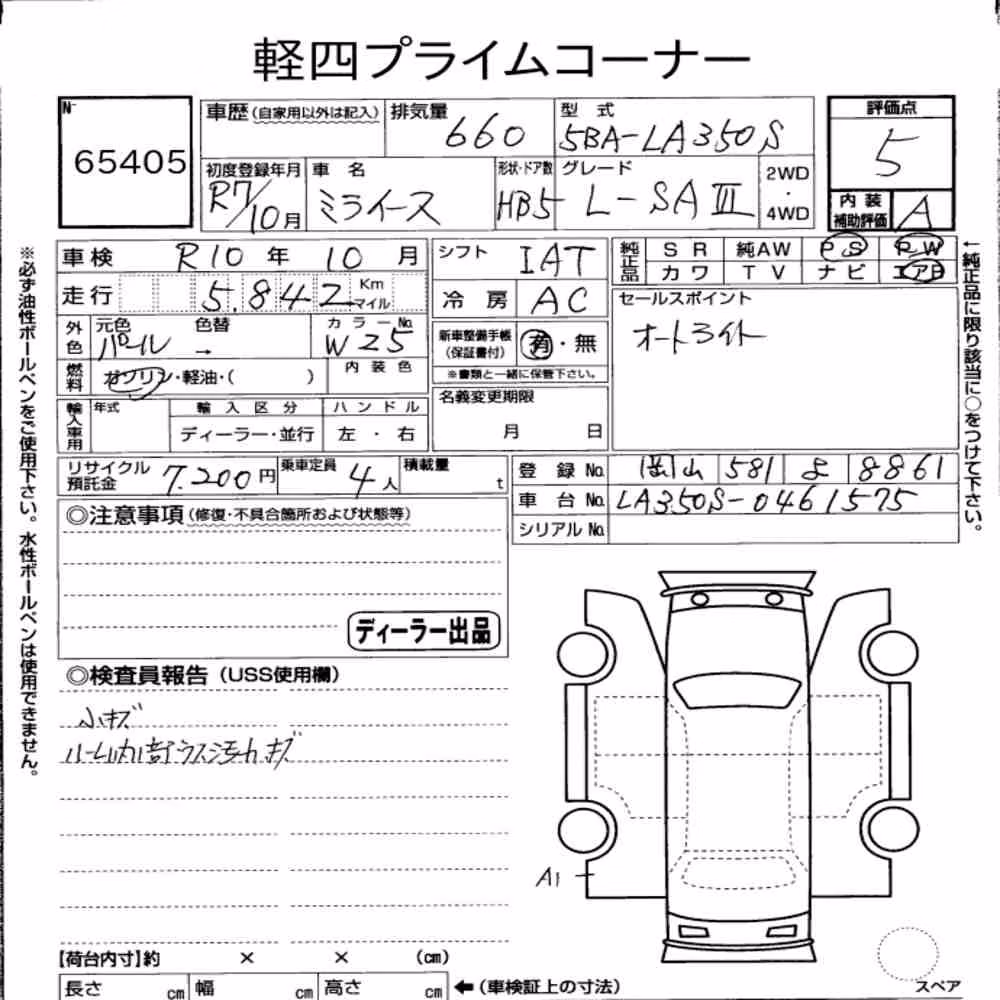 軽四プライムコーナー
No.
65405
車歴(自家用以外は記入)
排気量
660
型式
5BA-LA350S
評価点
5
初度登録年月
R7/10月
車名
ミライース
形状・ドア数
HB5
グレード
L-SAⅢ
2WD
・
4WD
内装
補助評価
A
※必ず油性ボールペンをご使用下さい。水性ボールペンは使用できません。
車検 R10年 10月
走行 5,842 Km マイル
外色
元色
パール
色替
→
カラーNo.
W25
燃料
ガソリン・軽油・( )
内装色
輸入車用
年式
輸入区分
ディーラー・並行
ハンドル
左・右
シフト IAT
冷房 AC
新車整備手帳
(保証書付)
有・無
※書類と一緒に保管下さい。
名義変更期限
月 日
純正品
SR 純AW PS PW
カワ TV ナビ エアB
セールスポイント
オートライト
←純正品に限り該当に○をつけて下さい。
リサイクル預託金 7,200円
乗車定員 4人
積載量 t
登録No. 岡山 581 よ 8861
車台No. LA350S-0461575
シリアルNo.
◎注意事項(修復・不具合箇所および状態等)
ディーラー出品
◎検査員報告(USS使用欄)
小キズ
ルーム内内部ウスヨゴレ キズ
A1
【荷台内寸】約 × × (cm)
長さ cm 幅 cm 高さ cm ←(車検証上の寸法)
スペア